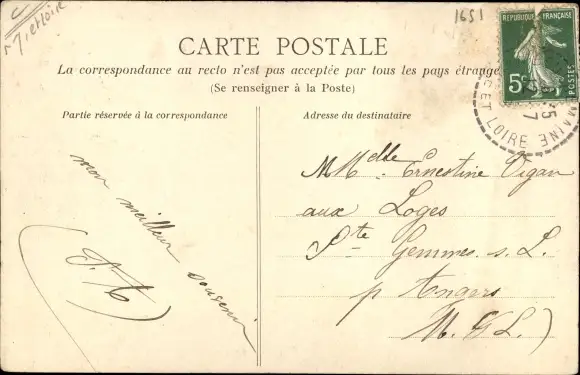 Mne et Loire
1651
CARTE POSTALE
La correspondance au recto n'est pas acceptée par tous les pays étrange
(Se renseigner à la Poste)
REPUBLIQUE FRANÇAISE
5c
POSTES
ET LOIRE
MAINE
Partie réservée à la correspondance
mon meilleur
souvenir
Adresse du destinataire
Melle Ernestine Vigan
aux Loges
Ste Gemmes. s. L.
p Angers
M. & L.)